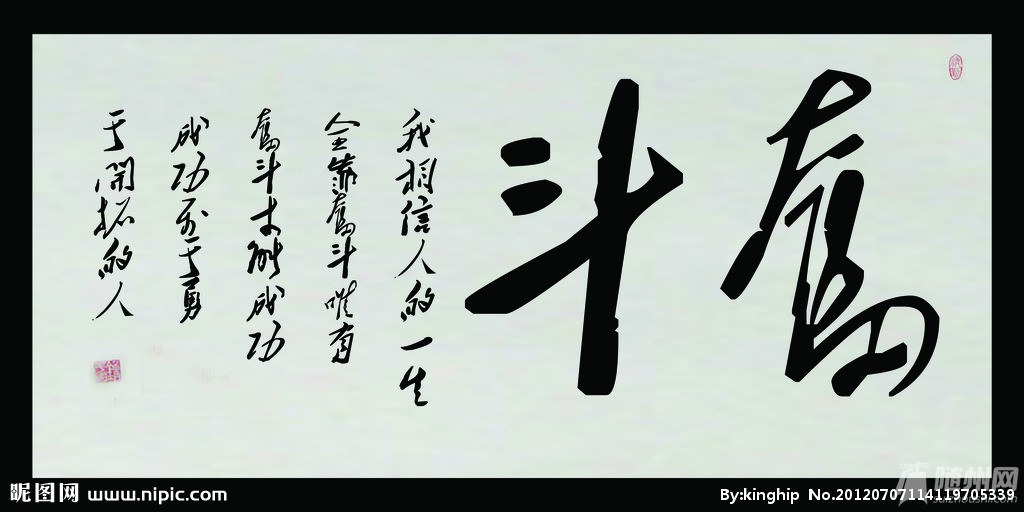 奮斗
我相信人的一生
全靠奮斗唯有
奮斗才能成功
成功属于勇
于開拓的人
昵图网 www.nipic.com
By:kinghip No.20120707114119705339
随州网
suizhoushi.com